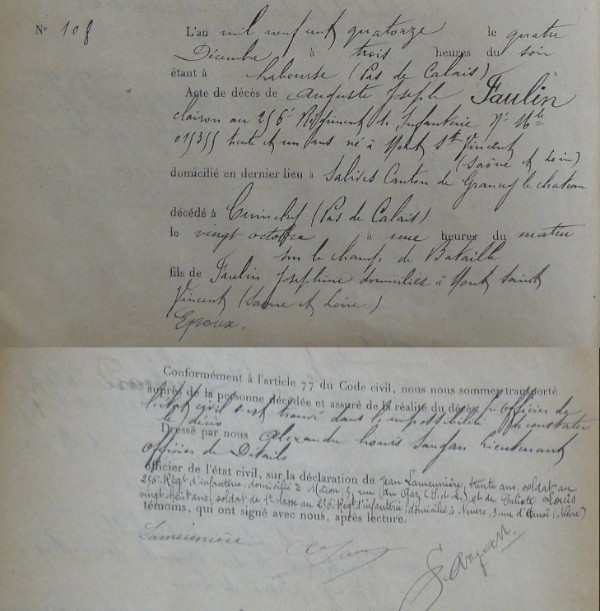 N° 108
L'an mil neuf cent quatorze le quatre
Décembre à trois heures du soir
étant à Labourse (Pas de Calais)
Acte de décès de Auguste Joseph Faulin
clairon au 256e Régiment de Infanterie N° Mle
015355 trente et un ans né à Mont St Vincent
(Saône et Loire)
domicilié en dernier lieu à Salives Canton de Grancey le chateau
décédé à Cuinchy (Pas de Calais)
le vingt octobre à une heures du matin
sur le champ de Bataille
fils de Faulin Josephine domiciliée à Mont saint
Vincent (Saone et Loire)
Epoux.
Conformément à l'article 77 du Code civil, nous nous sommes transporté
auprès de la personne décédée et assuré de la réalité du décès
officier de
l'état civil s'est trouvé dans l'impossibilité de constater
le décès
Dressé par nous Alexandre Louis Lieutenant
officier de Détails
officier de l'état civil, sur la déclaration de Jean Lameunière, trente ans, soldat au
256e Régt d'infanterie, domicilié à Mâcon 5 rue (S. & L.) et de Louis
vingt huit ans, soldat de 1e classe au 256e Régt d'infanterie, domicilié à Nevers, (Nièvre)
témoins, qui ont signé avec nous, après lecture.